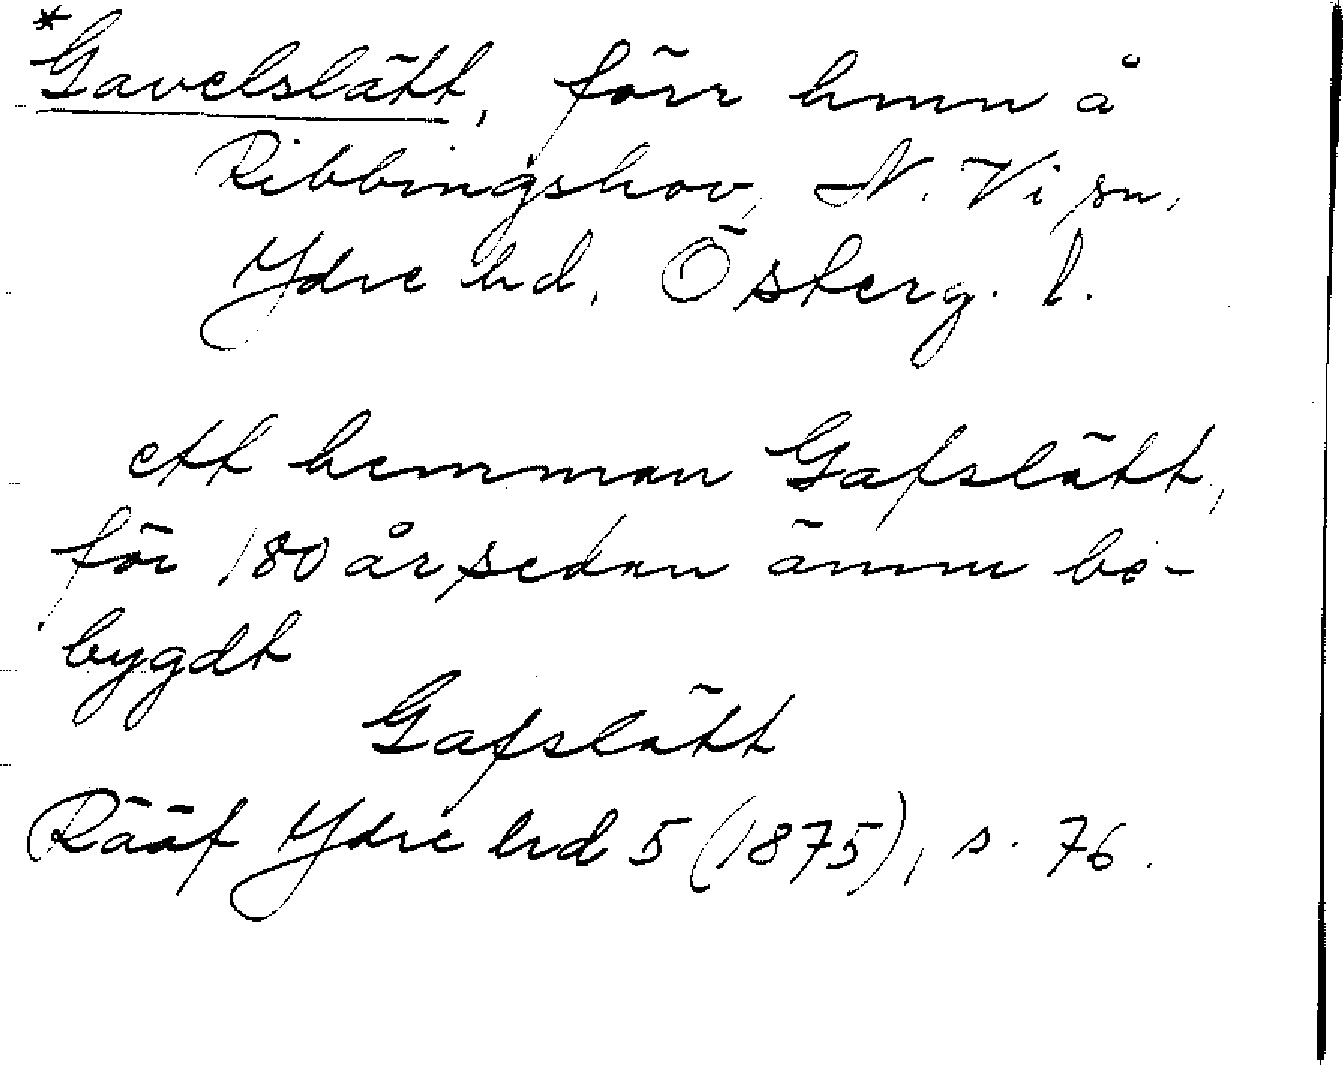 *Gavelslätt, förr hmn å
Ribbingshov, N. Vi sn,
Ydre hd, Österg. l.
ett hemman Gafslätt,
för 180 år sedan ännu be-
bygdt
Gafslätt
Rääf Ydre hd 5 (1875), s. 76.